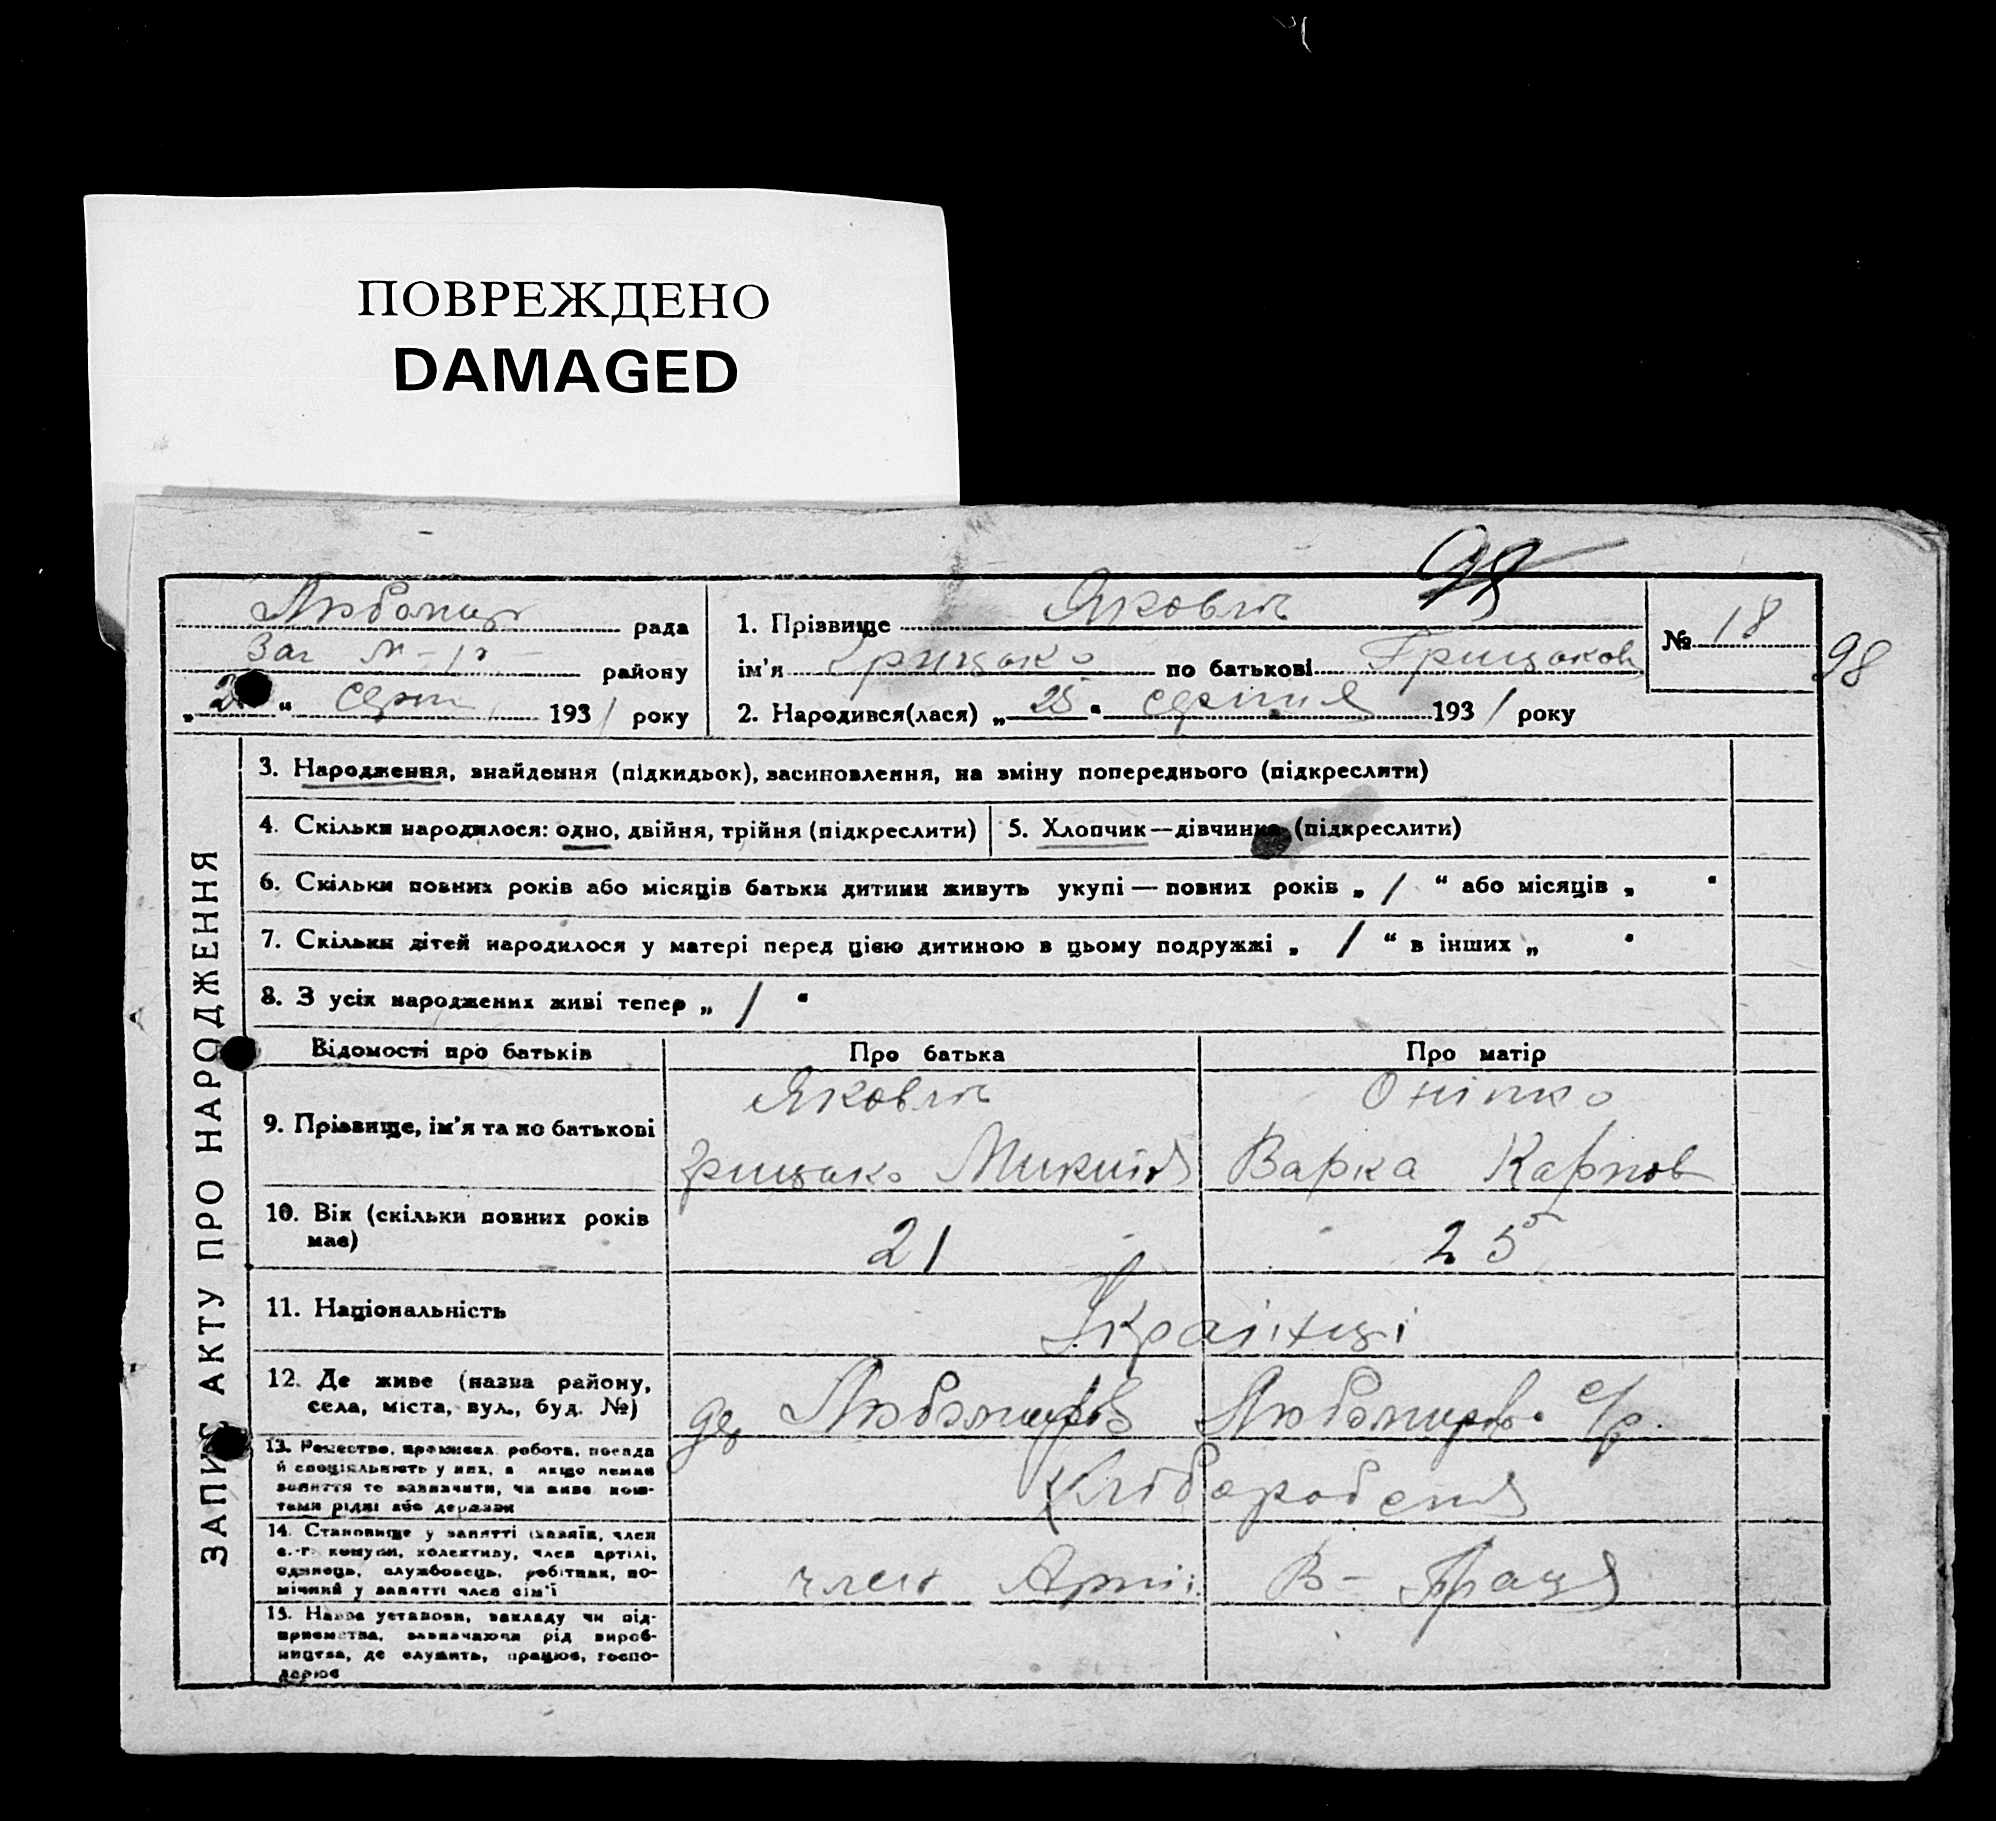 ПОВРЕЖДЕНО
DAMAGED
98
рада
району
" серп 1931 року
1. Прізвище Яковлів
ім'я Грицько по батькові Грицьков
2. Народився(лася) „25" серпня 1931 року
№ 18
98
ЗАПИС АКТУ ПРО НАРОДЖЕННЯ
3. Народження, знайдення (підкидьок), засиновлення, на зміну попереднього (підкреслити)
4. Скільки народилося: одно, двійня, трійня (підкреслити)
5. Хлопчик—дівчинка (підкреслити)
6. Скільки повних років або місяців батьки дитини живуть укупі — повних років „ / “ або місяців „ "
7. Скільки дітей народилося у матері перед цією дитиною в цьому подружжі „ / “ в інших „ "
8. З усіх народжених живі тепер „ / "
Відомості про батьків
Про батька
Про матір
9. Прізвище, ім'я та по батькові
Яковлів
грицько
Оніпко
Варка Карпов
10. Вік (скільки повних років має)
21
25
11. Національність
Українці
12. Де живе (назва району,
села, міста, вул., буд. №)
с/р.
13. Ремество, промисел, робота, посада
й спеціяльність у них, а якщо немає
заняття то зазначити, чи живе кош-
тами рідні або держави
Хліборобення
14. Становище у занятті (хазяїн, член
с.-г. комуни, колективу, член артілі,
одинець, службовець, робітник, по-
мічний у занятті член сім'ї
член Арті
В- Праця
15. Назва установи, закладу чи під-
приємства, зазначаючи рід вироб-
ництва, де служить, працює, госпо-
дарює